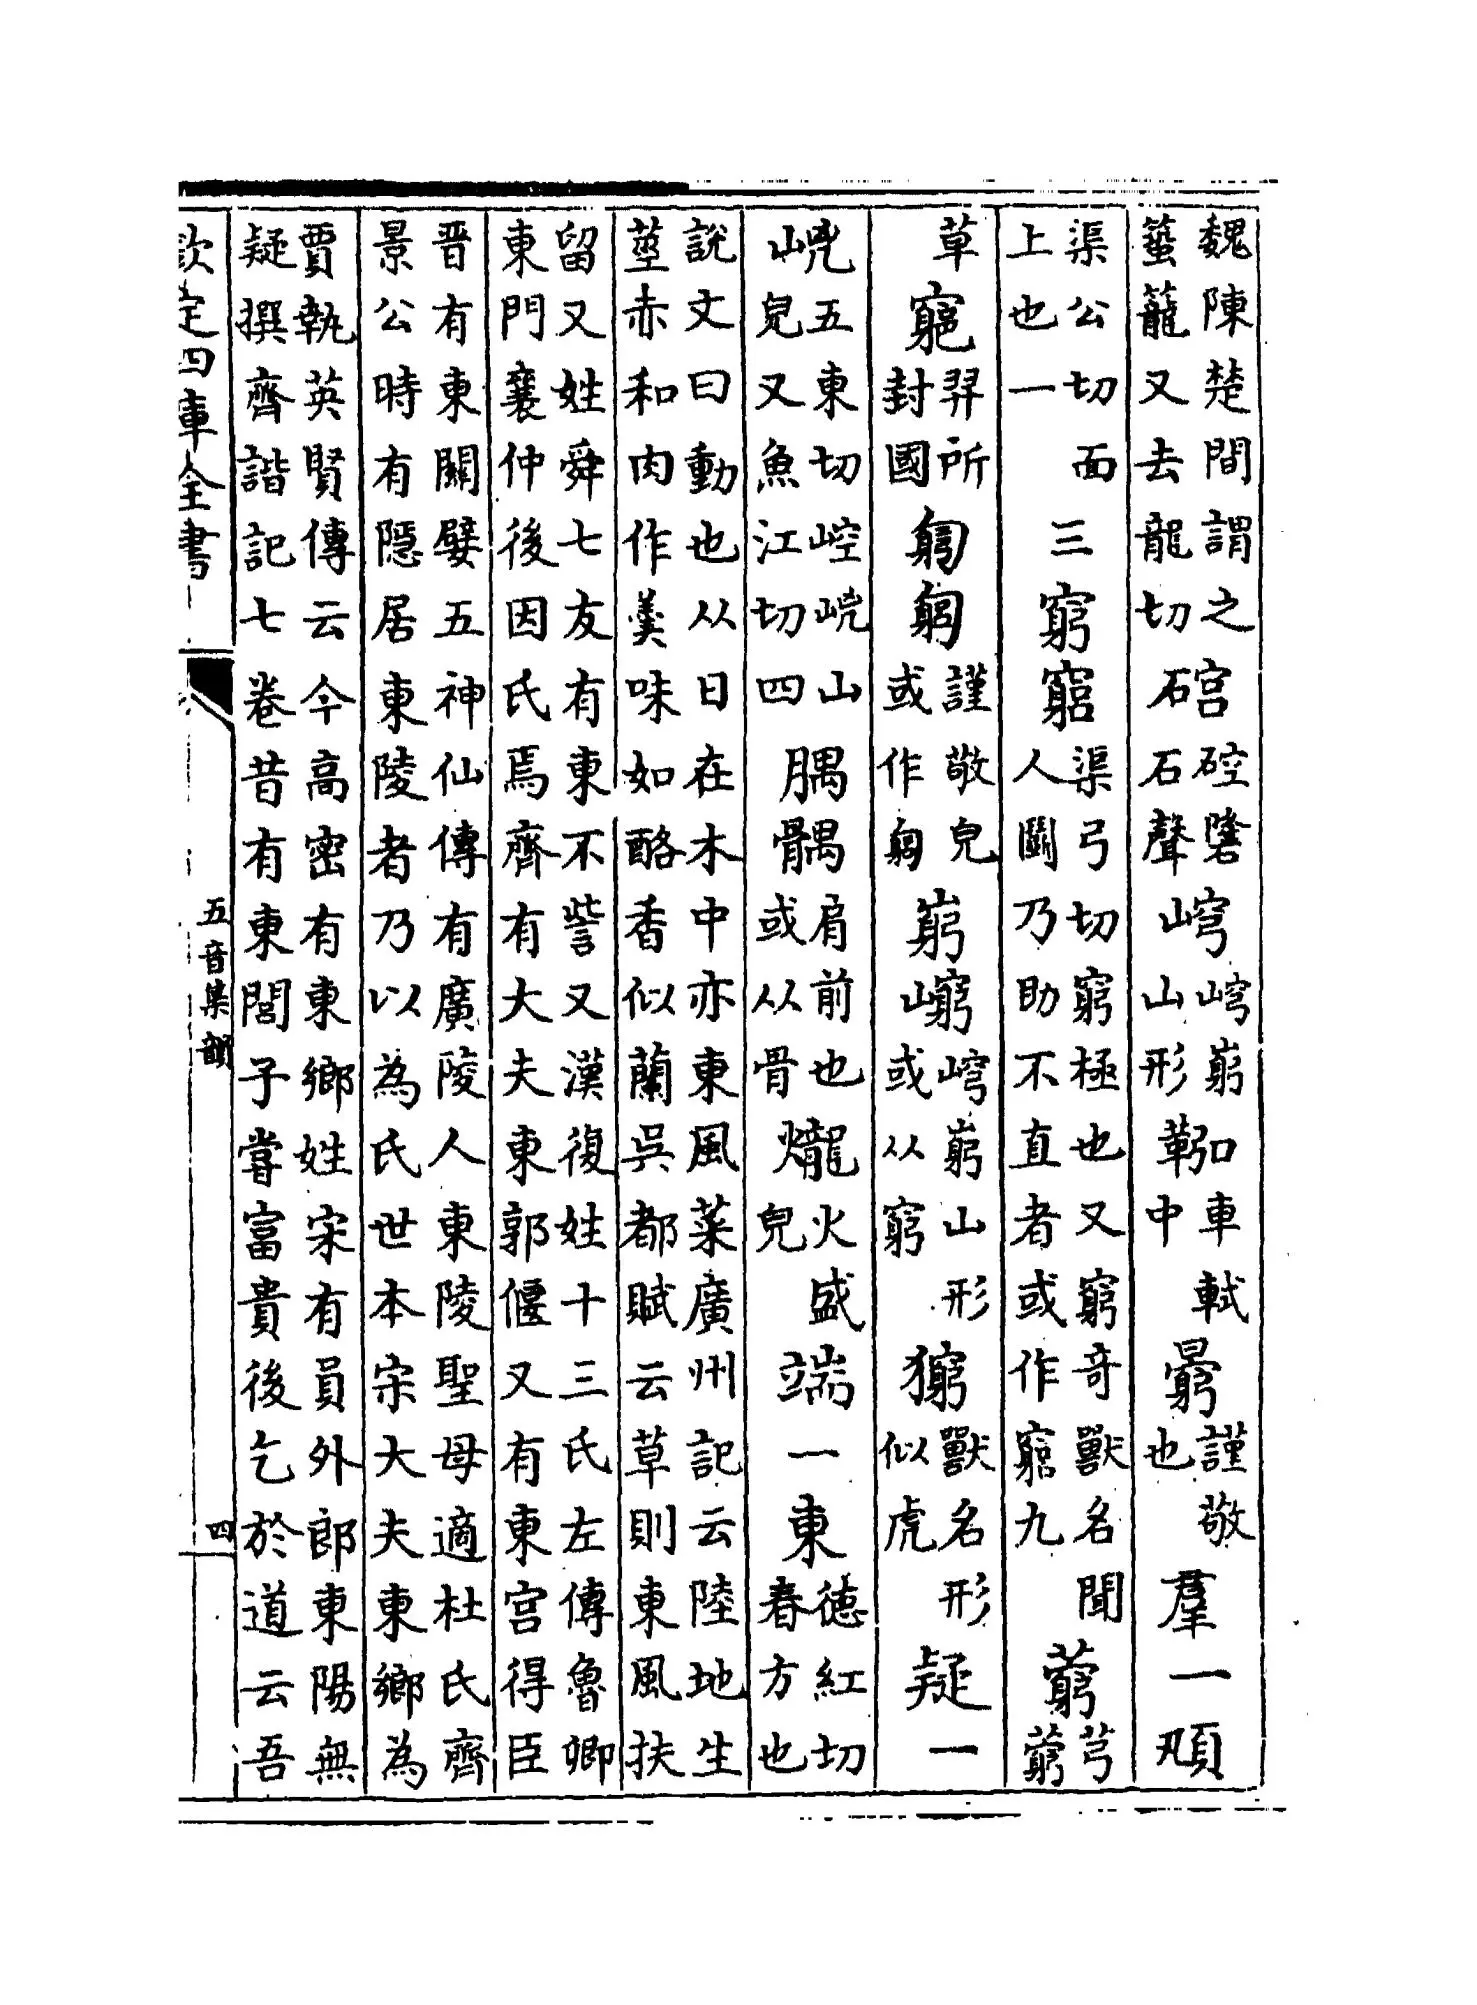 魏陳楚間謂之籠又去龍切 硿礲石聲 山形 車軾中 謹敬也 羣一
渠公切面上也一 三 窮竆 渠弓切窮極也又窮奇獸名聞人鬭乃助不直者或作竆九 藭 芎藭
草 竆 羿所封國 匑匔 謹敬皃或作匑 山形或从窮 獸名形似虎 疑一
五東切崆山皃又魚江切四 腢髃 肩前也或从骨 爖 火盛皃 端一 東 德紅切春方也
說文曰動也从日在木中亦東風菜廣州記云陸地生莖赤和肉作羹味如酪香似蘭吳都賦云草則東風扶
留又姓舜七友有東不訾又漢復姓十三氏左傳魯卿東門襄仲後因氏焉齊有大夫東郭偃又有東宮得臣
晋有東關嬖五神仙傳有廣陵人東陵聖母適杜氏齊景公時有隱居東陵者乃以為氏世本宋大夫東鄉為
賈執英賢傳云今高密有東鄉姓宋有員外郎東陽無疑撰齊諧記七卷昔有東閭子嘗富貴後乞於道云吾
欽定四庫全書 五音集韻 四